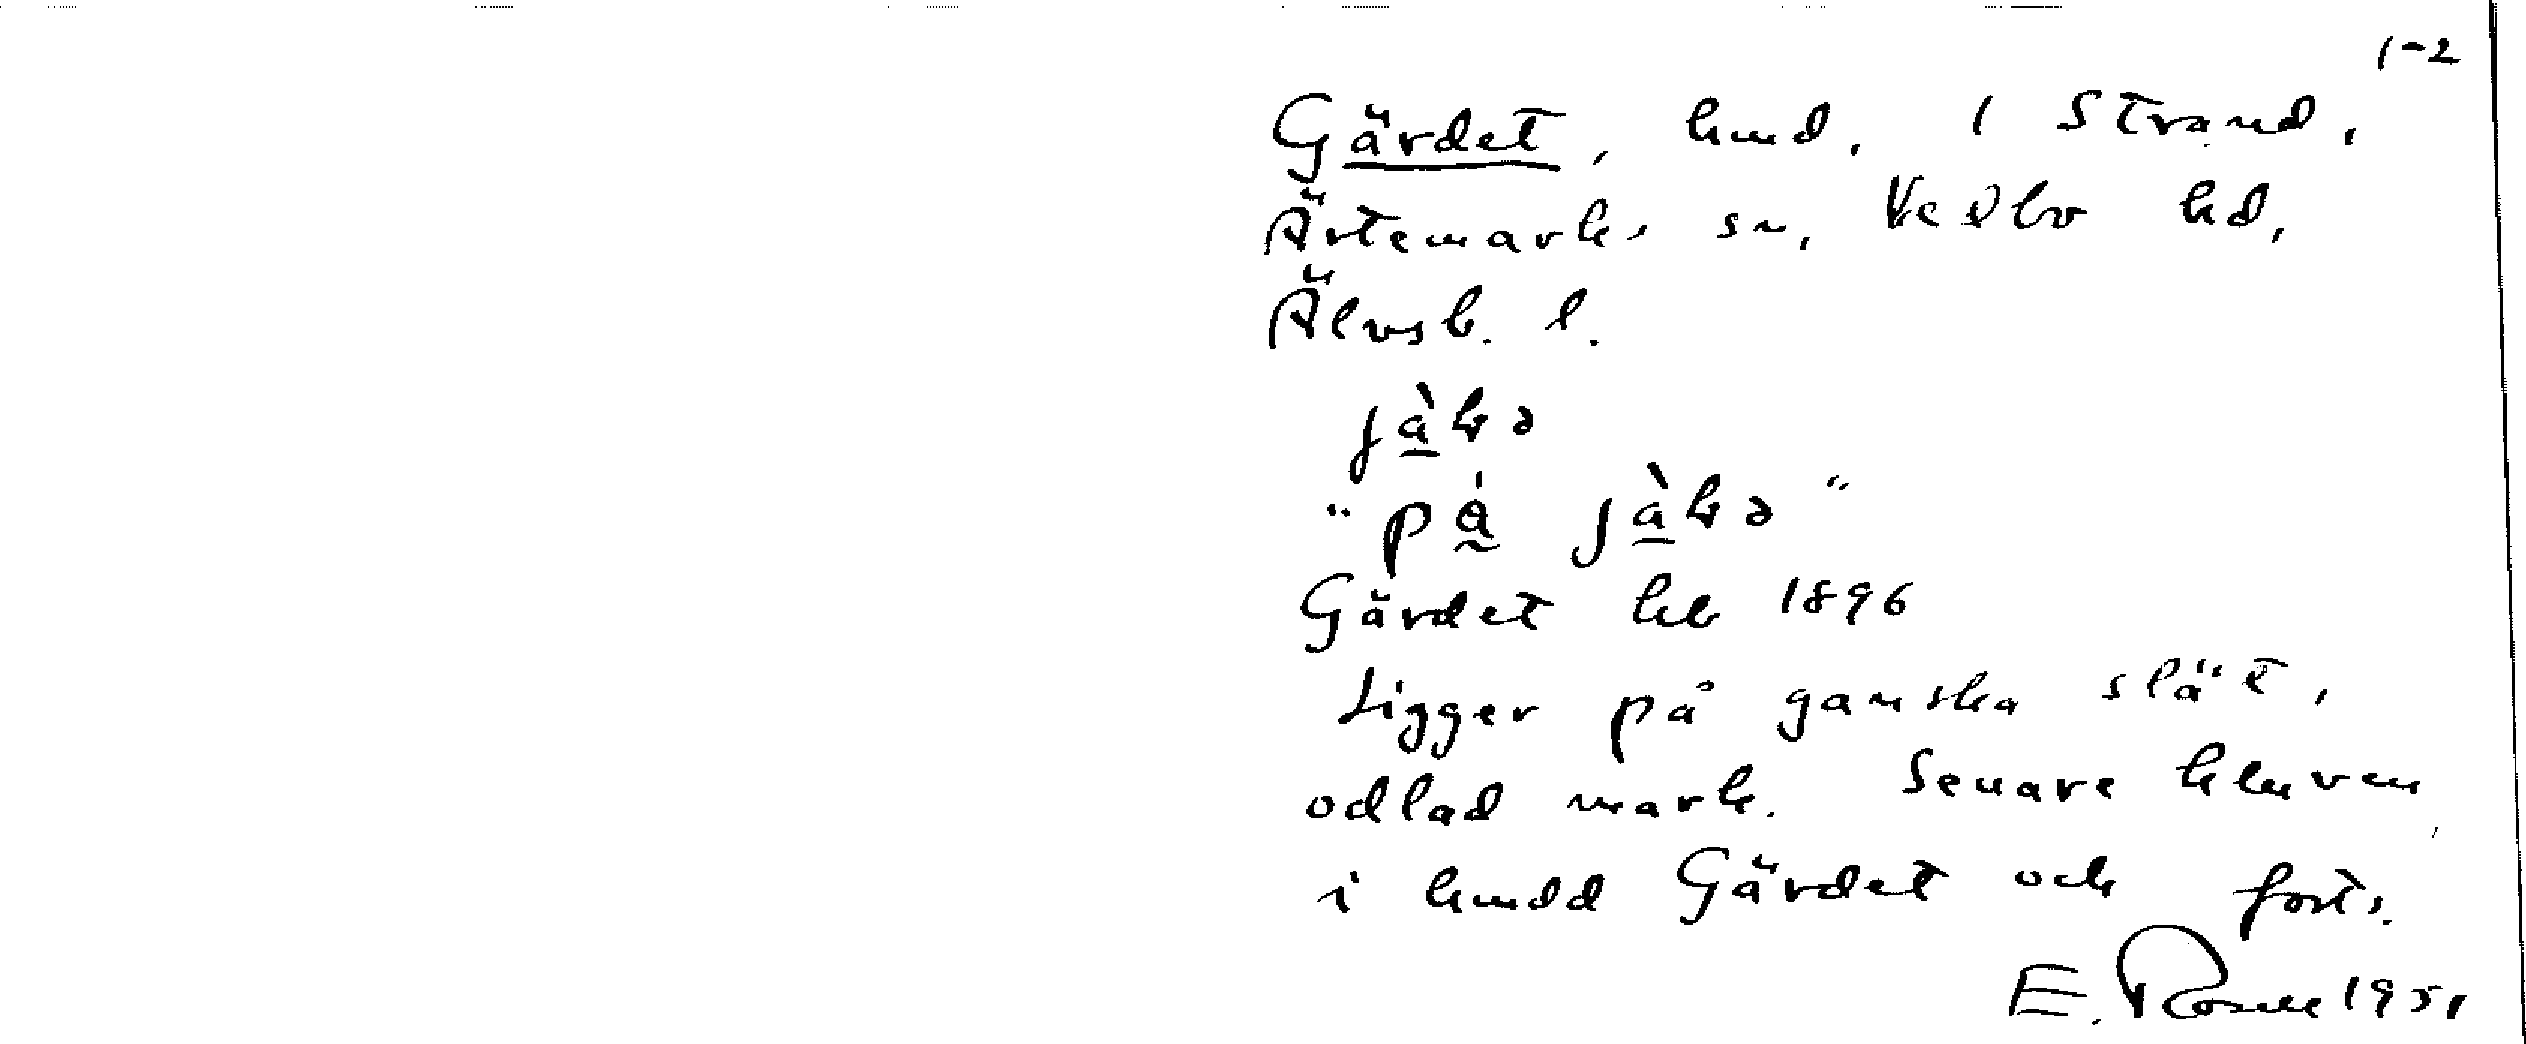 1-2
Gärdet, hmd, i Strand,
Ärtemarks sn, Vedbo hd,
Älvsb. l.
Gärdet hb 1896
Ligger på ganska slät,
odlad mark. Senare kluven
i hmdd Gärdet och forts.
E. Rosell 1951